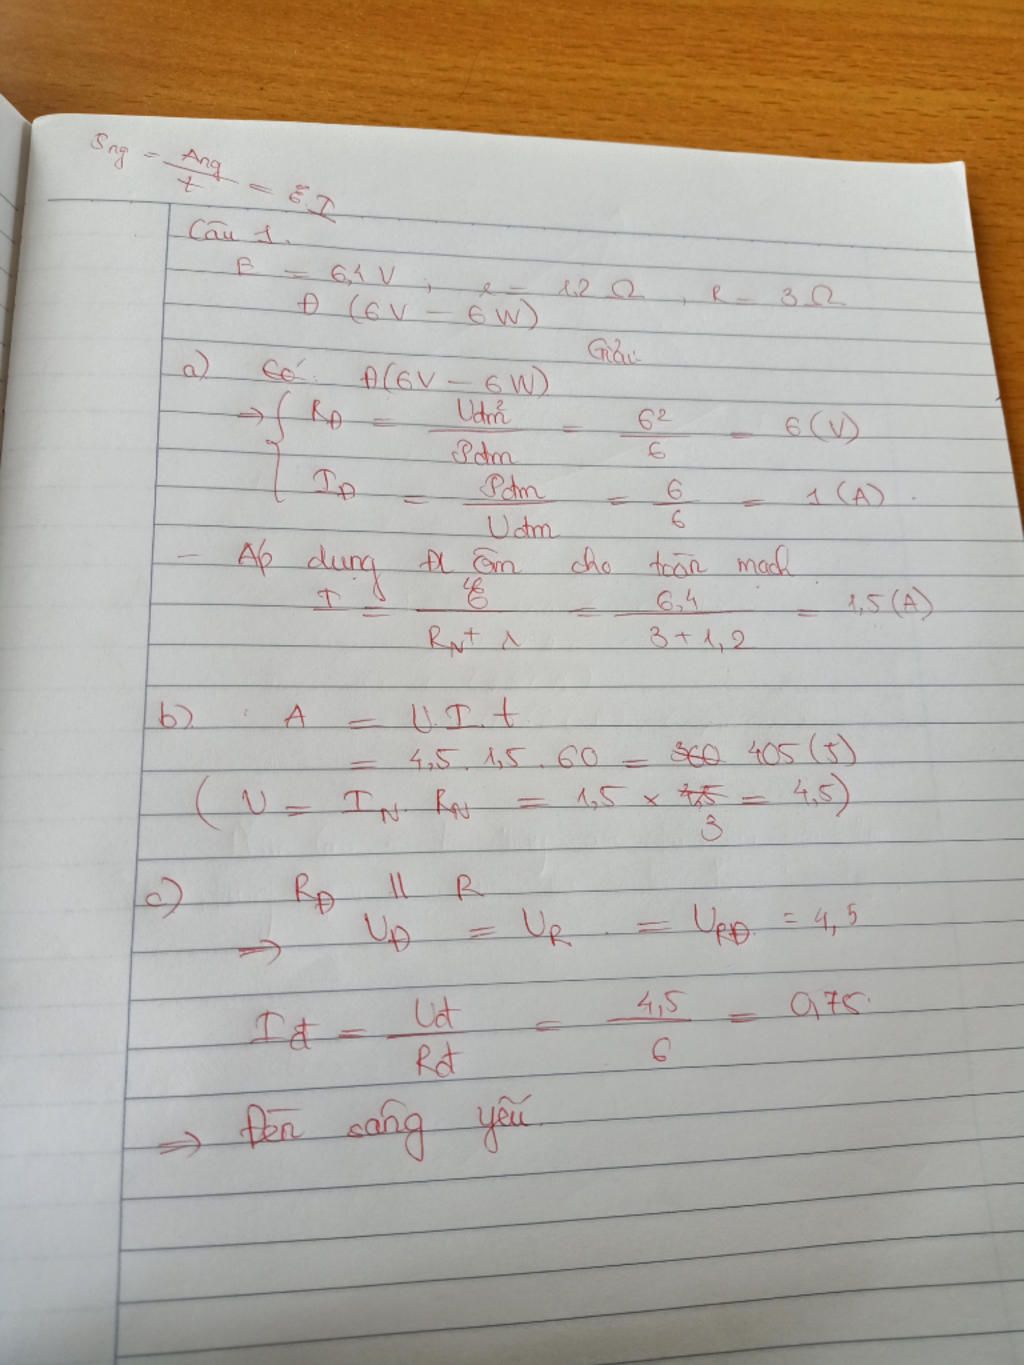 Png = Ang / t = E.I
Câu 1.
E = 6,4 V, r = 1,2 Ω, R = 3 Ω
Đ (6V - 6W)
Giải
a) Có: Đ(6V - 6W)
=> { RĐ = Uđm² / Pđm = 6² / 6 = 6 (V)
IĐ = Pđm / Uđm = 6 / 6 = 1 (A).
- Áp dụng ĐL Ôm cho toàn mạch
I = E / RN + r = 6,4 / 3 + 1,2 = 1,5 (A)
b) A = U.I.t
= 4,5. 1,5. 60 = 405 (J)
(U = IN. RN = 1,5 × 3 = 4,5)
c) RĐ || R
=> UĐ = UR = URĐ = 4,5
Iđ = Uđ / Rđ = 4,5 / 6 = 0,75.
=> Đèn sáng yếu